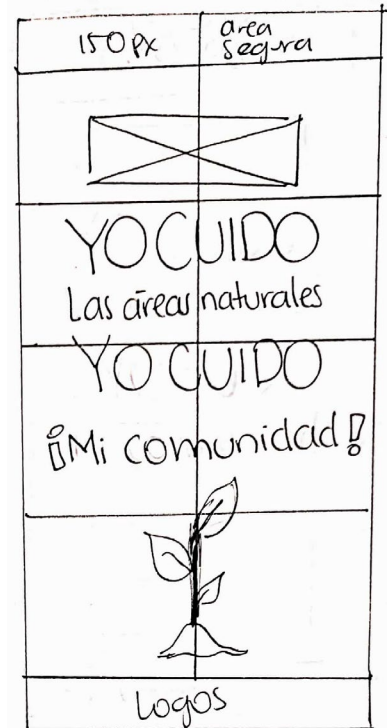 150 px
área
segura
YO CUIDO
Las áreas naturales
YO CUIDO
¡Mi comunidad!
Logos